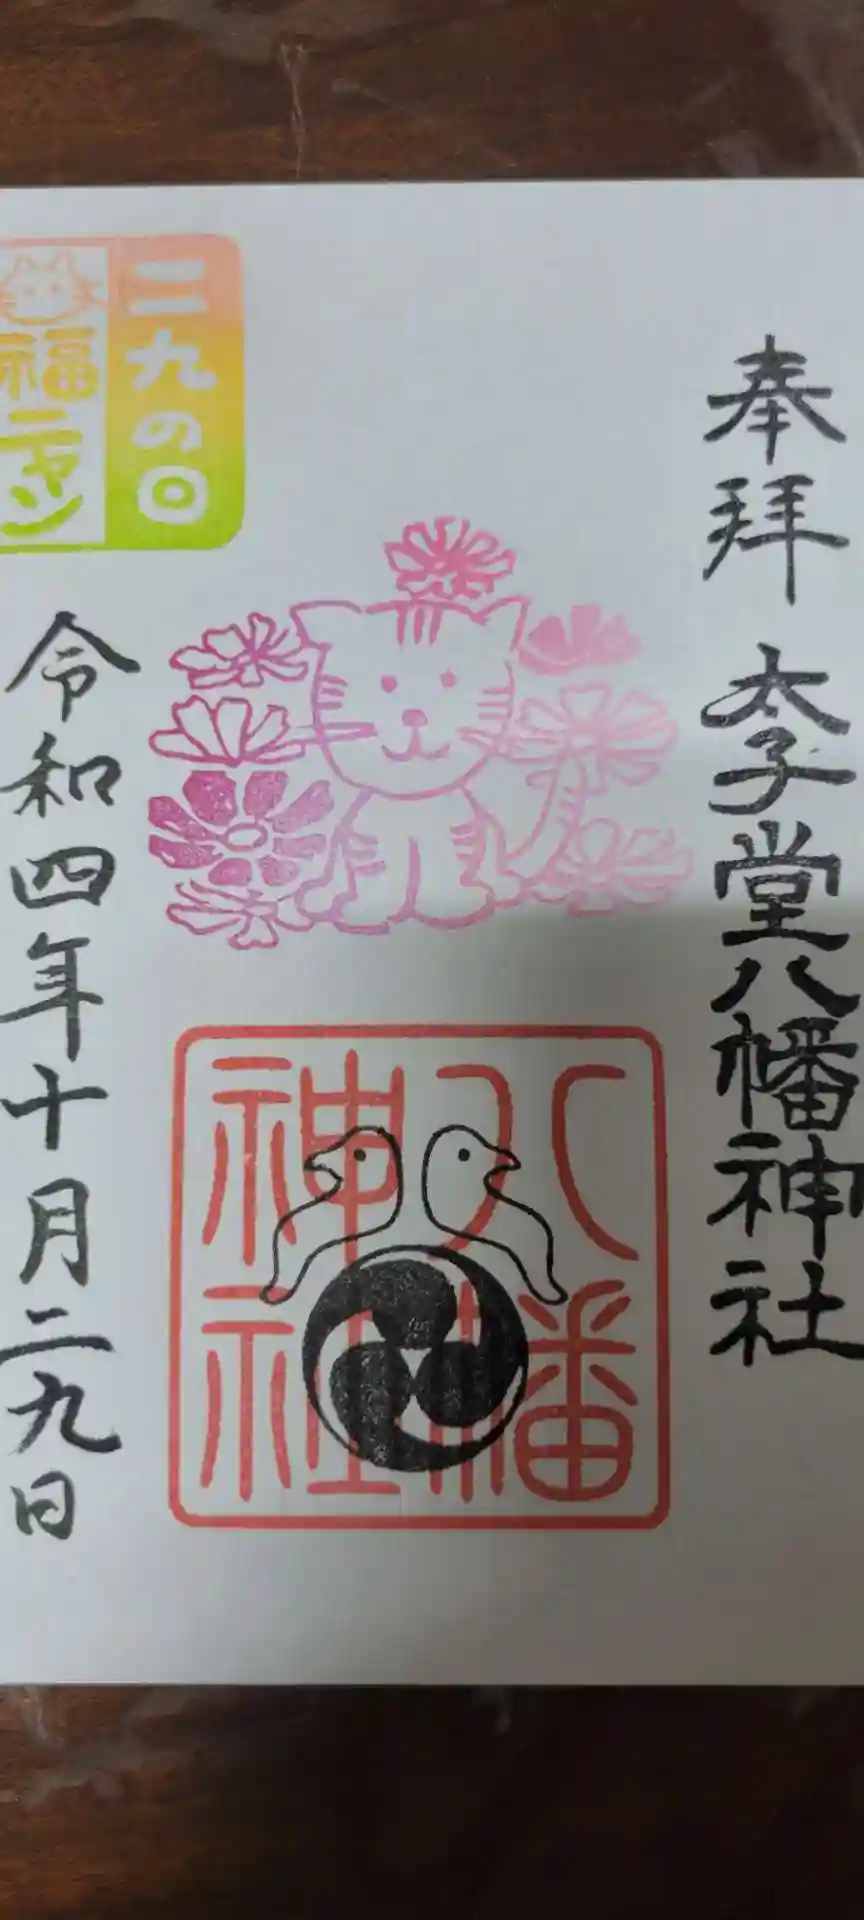 奉拝 太子堂八幡神社
八幡
神社
二九の日
福ニャン
令和四年十月二九日